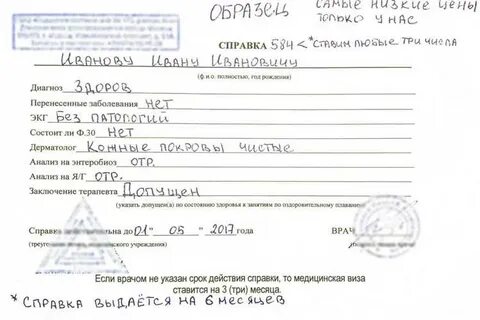 ОБРАЗЕЦ
САМЫЕ НИЗКИЕ ЦЕНЫ
ТОЛЬКО У НАС
СПРАВКА 584 < *СТАВИМ ЛЮБЫЕ ТРИ ЧИСЛА
ИВАНОВУ ИВАНУ ИВАНОВИЧУ
(ф.и.о. полностью, год рождения)
Диагноз ЗДОРОВ
Перенесенные заболевания НЕТ
ЭКГ БЕЗ ПАТОЛОГИЙ
Состоит ли Ф.30 НЕТ
Дерматолог КОЖНЫЕ ПОКРОВЫ ЧИСТЫЕ
Анализ на энтеробиоз ОТР.
Анализ на Я/Г ОТР.
Заключение терапевта ДОПУЩЕН
(указать допущен(а) по состоянию здоровья к занятиям по оздоровительному плаванию)
Справка действительна до 01 " 05 " 2017 г. ВРАЧ
Если врачом не указан срок действия справки, то медицинская виза
ставится на 3 (три) месяца.
* СПРАВКА ВЫДАЁТСЯ НА 6 МЕСЯЦЕВ